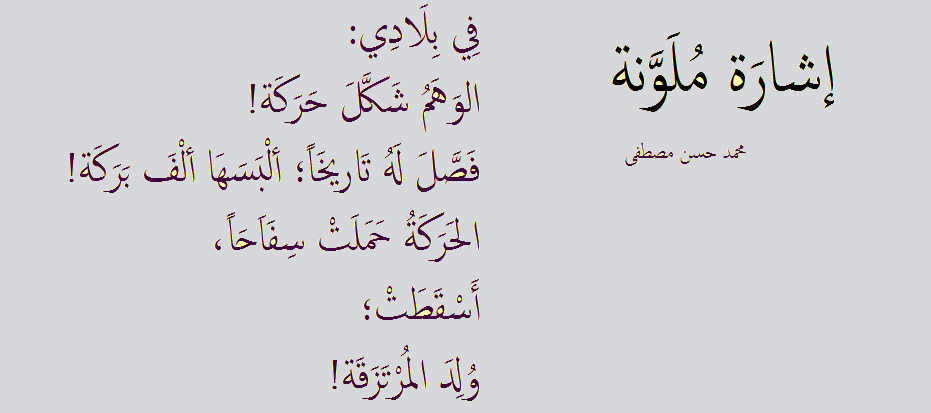 إشارَة مُلَوَّنة
محمد حسن مصطفى
فِي بِلَادِي:
الوَهَمُ شَكَّلَ حَرَكَة!
فَصَّلَ لَهُ تَاريخَاً؛ ألْبَسَهَا ألْفَ بَرَكَة!
الحَرَكَةُ حَمَلَتْ سِفَاَحَاً،
أَسْقَطَتْ؛
وُلِدَ المُرْتَزَقَة!